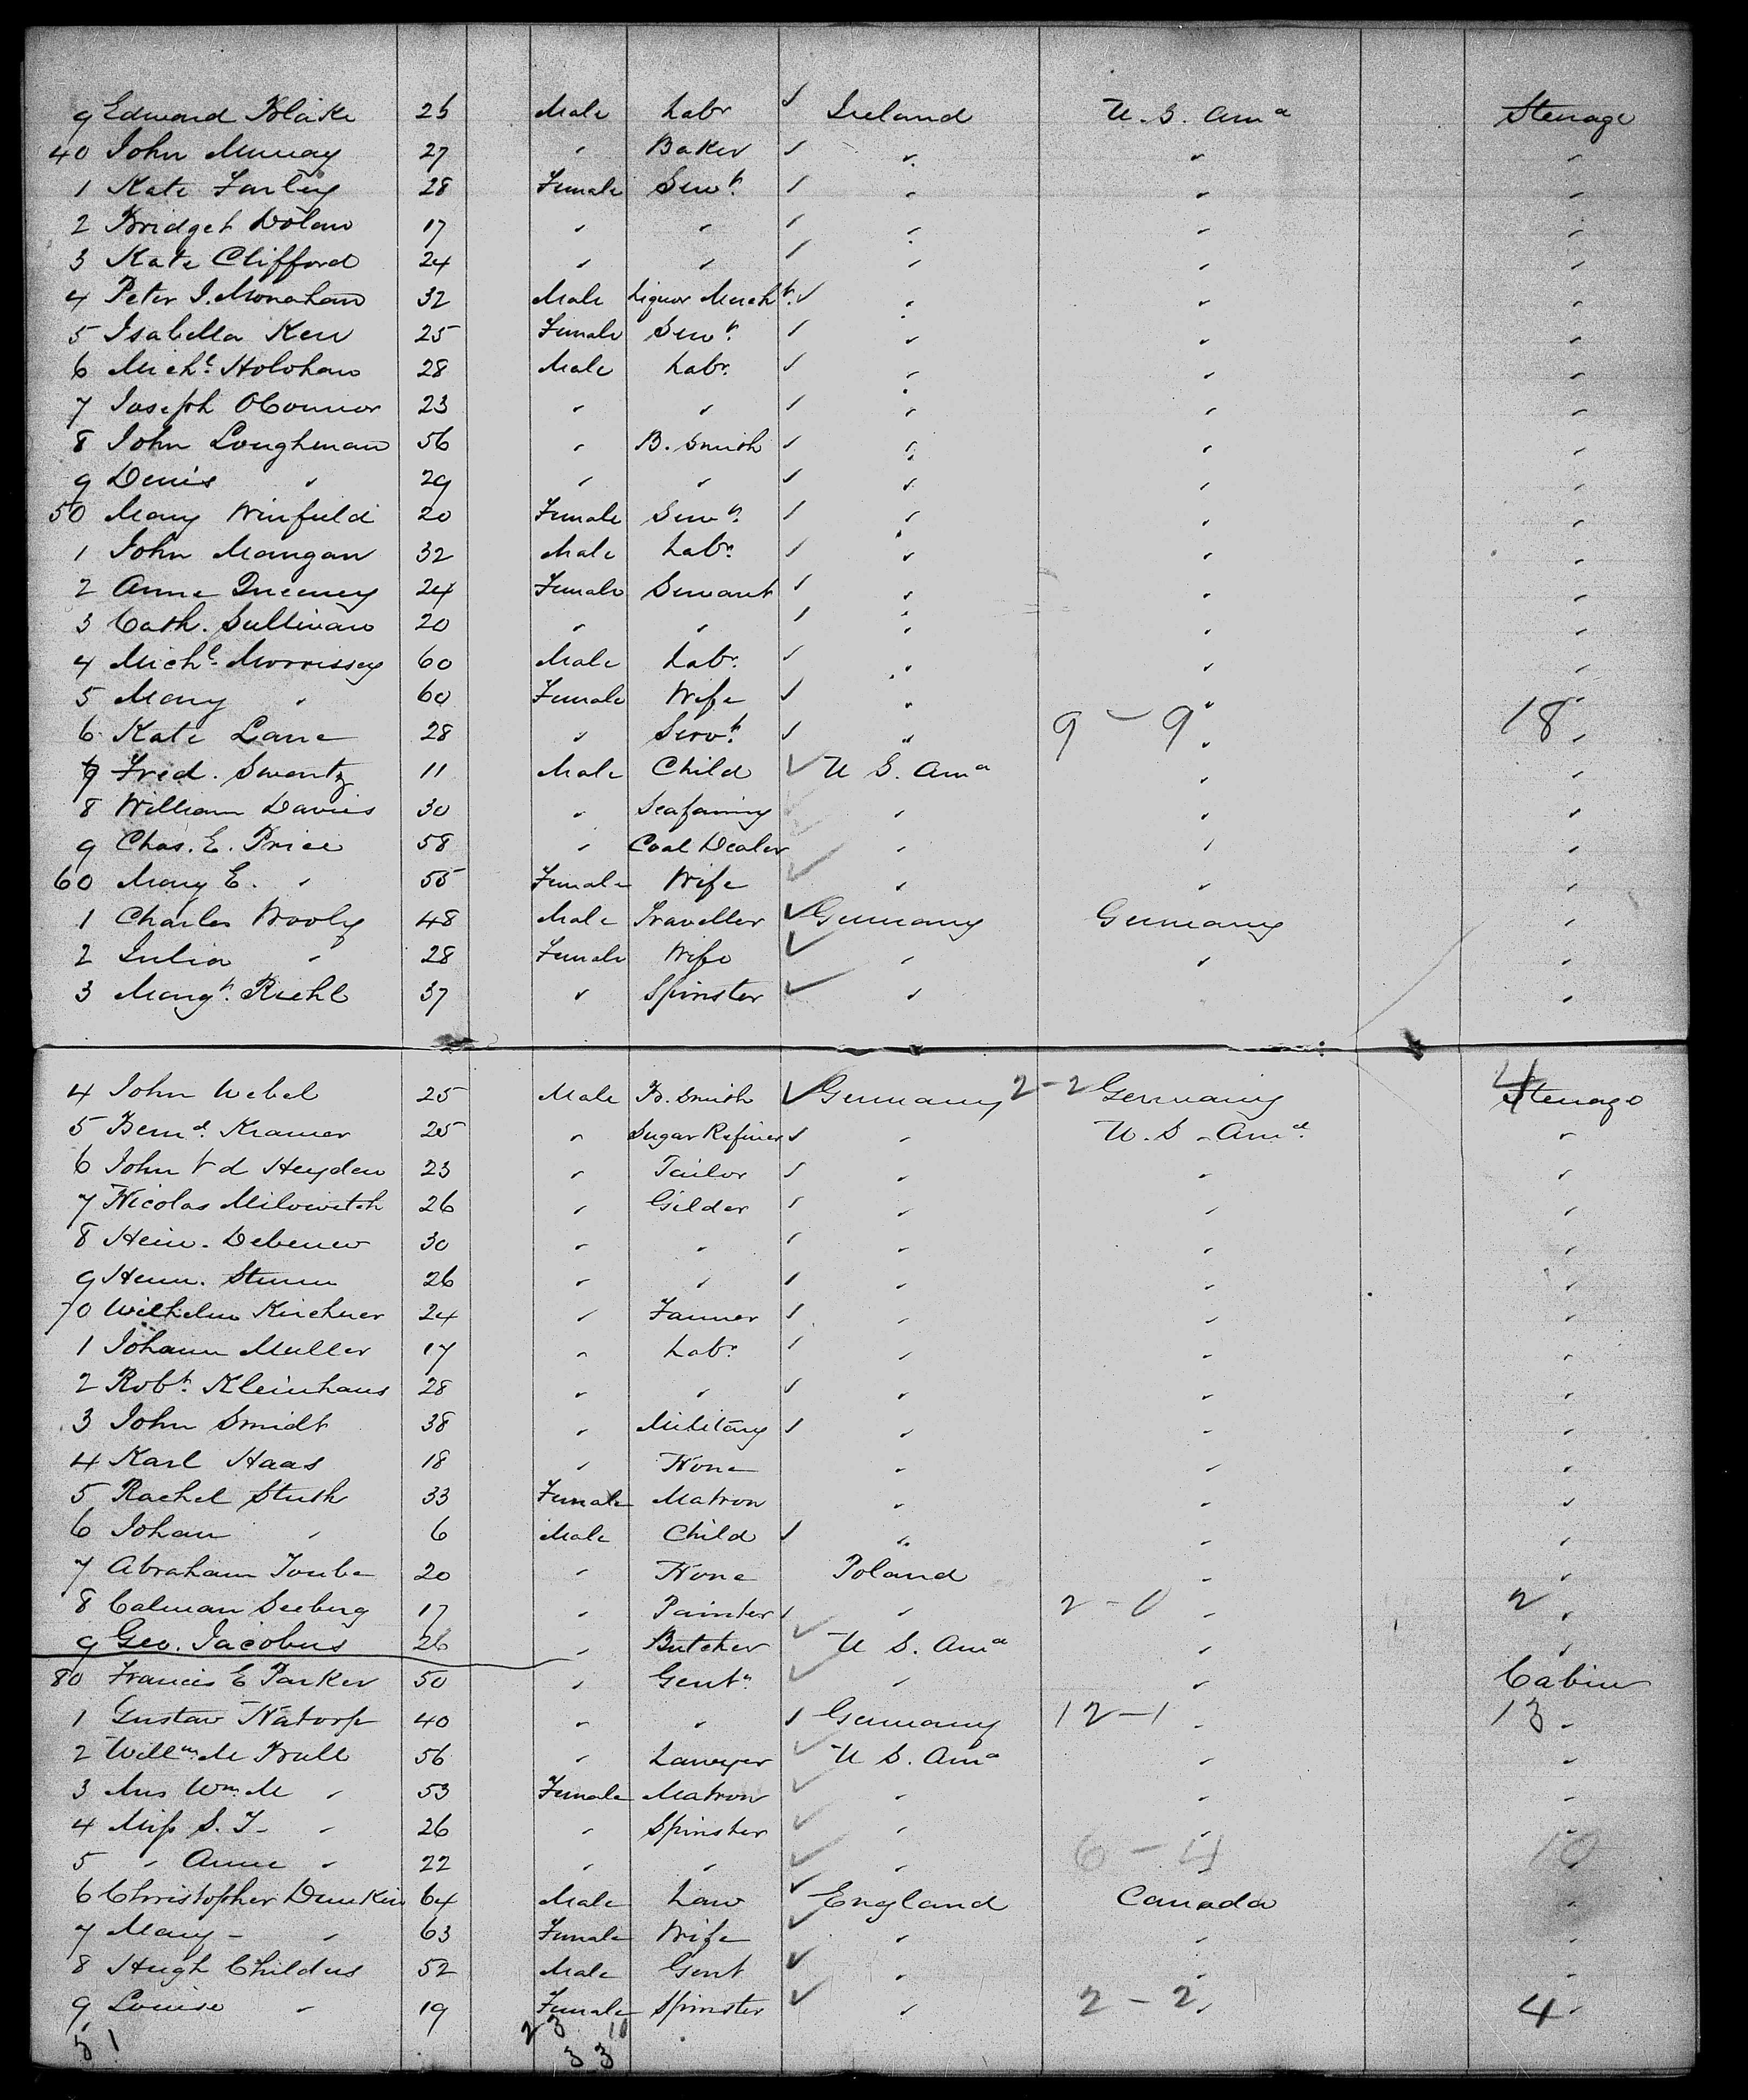 9 Edward Blake 25 Male Labr ✓ Ireland U. S. Amª Steerage
40 John Murray 27 " Baker ✓ " " "
1 Kate Farley 28 Female Servt. ✓ " " "
2 Bridget Dolan 17 " " ✓ " " "
3 Kate Clifford 24 " " ✓ " " "
4 Peter J. Monahan 32 Male Liquor Mercht. ✓ " " "
5 Isabella Kerr 25 Female Servt. ✓ " " "
6 Michl. Holohan 28 Male Labr. ✓ " " "
7 Joseph OConnor 23 " " ✓ " " "
8 John Loughman 56 " B. Smith ✓ " " "
9 Denis " 29 " " ✓ " " "
50 Mary Winfield 20 Female Servt. ✓ " " "
1 John Mangan 32 Male Labr. ✓ " " "
2 Anne Queeney 24 Female Servant ✓ " " "
3 Cath. Sullivan 20 " " ✓ " " "
4 Michl. Morrissey 60 Male Labr. ✓ " " "
5 Mary " 60 Female Wife ✓ " " "
6 Kate Lane 28 " Servt. ✓ " 9 - 9 " 18 "
7 Fred. Swartz 11 Male Child ✓ U S. Amª " "
8 William Davies 30 " Seafaring ✓ " " "
9 Chas. E. Price 58 " Coal Dealer ✓ " " "
60 Mary E. " 55 Female Wife ✓ " " "
1 Charles Wooly 48 Male Traveller ✓ Germany Germany "
2 Julia " 28 Female Wife ✓ " " "
3 Margt. Riehl 37 " Spinster ✓ " "
4 John Webel 25 Male B. Smith ✓ Germany 2-2 Germany 4 Steerage
5 Bernd. Kramer 25 " Sugar Refiner ✓ " U. S. Amª "
6 John V d Heyden 23 " Tailor ✓ " " "
7 Nicolas Milowitch 26 " Gilder ✓ " " "
8 Heinr. Debener 30 " " ✓ " " "
9 Henr. Sturm 26 " " ✓ " " "
70 Wilhelm Kirchner 24 " Farmer ✓ " " "
1 Johann Muller 17 " Labr. ✓ " " "
2 Robt. Kleinhaus 28 " " ✓ " " "
3 John Smidt 38 " Military ✓ " " "
4 Karl Haas 18 " None " " "
5 Rachel 33 Female Matron " " "
6 Johan " 6 Male Child ✓ " " "
7 Abraham 20 " None Poland " "
8 Calman Seeberg 17 " Painter ✓ " 2 - 0 " 2 "
9 Geo. Jacobus 26 " Butcher ✓ U S. Amª " "
80 Francis E Parker 50 " Gentn. ✓ " " Cabin
1 Gustav Natorp 40 " " ✓ Germany 12-1 " 13 "
2 Willm. M Trull 56 " Lawyer ✓ U S. Amª " "
3 Mrs Wm. M " 53 Female Matron ✓ " " "
4 Miss S. T. " 26 " Spinster ✓ " " "
5 " Anne " 22 " " ✓ " 6 - 4 10
6 Christopher Dunkin 64 Male Law ✓ England Canada "
7 Mary " 63 Female Wife ✓ " " "
8 Hugh Childers 52 Male Gent ✓ " " "
9 Louise " 19 Female Spinster ✓ " 2 - 2 " 4 "
51 23 10
33